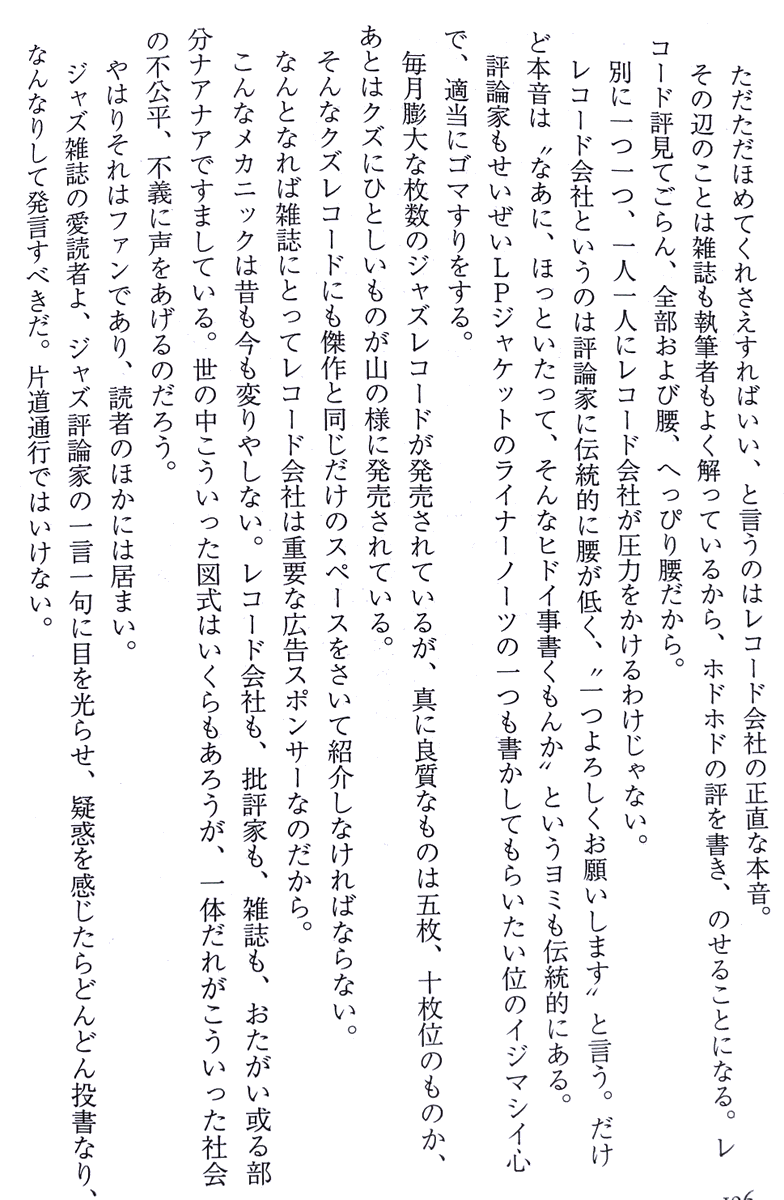 ただただほめてくれさえすればいい、と言うのはレコード会社の正直な本音。
その辺のことは雑誌も執筆者もよく解っているから、ホドホドの評を書き、のせることになる。レ
コード評見てごらん、全部および腰、へっぴり腰だから。
別に一つ一つ、一人一人にレコード会社が圧力をかけるわけじゃない。
レコード会社というのは評論家に伝統的に腰が低く、〝一つよろしくお願いします〟と言う。だけ
ど本音は〝なあに、ほっといたって、そんなヒドイ事書くもんか〟というヨミも伝統的にある。
評論家もせいぜいLPジャケットのライナーノーツの一つも書かしてもらいたい位のイジマシイ心
で、適当にゴマすりをする。
毎月膨大な枚数のジャズレコードが発売されているが、真に良質なものは五枚、十枚位のものか、
あとはクズにひとしいものが山の様に発売されている。
そんなクズレコードにも傑作と同じだけのスペースをさいて紹介しなければならない。
なんとなれば雑誌にとってレコード会社は重要な広告スポンサーなのだから。
こんなメカニックは昔も今も変りやしない。レコード会社も、批評家も、雑誌も、おたがい或る部
分ナアナアですましている。世の中こういった図式はいくらもあろうが、一体だれがこういった社会
の不公平、不義に声をあげるのだろう。
やはりそれはファンであり、読者のほかには居まい。
ジャズ雑誌の愛読者よ、ジャズ評論家の一言一句に目を光らせ、疑惑を感じたらどんどん投書なり、
なんなりして発言すべきだ。片道通行ではいけない。